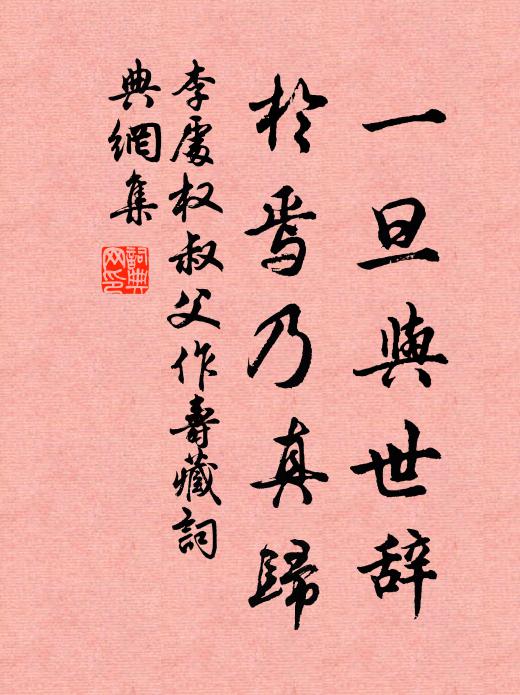 一旦與世辞
於焉乃真歸
李處权叔父作壽藏詞
典網集
詞典網印